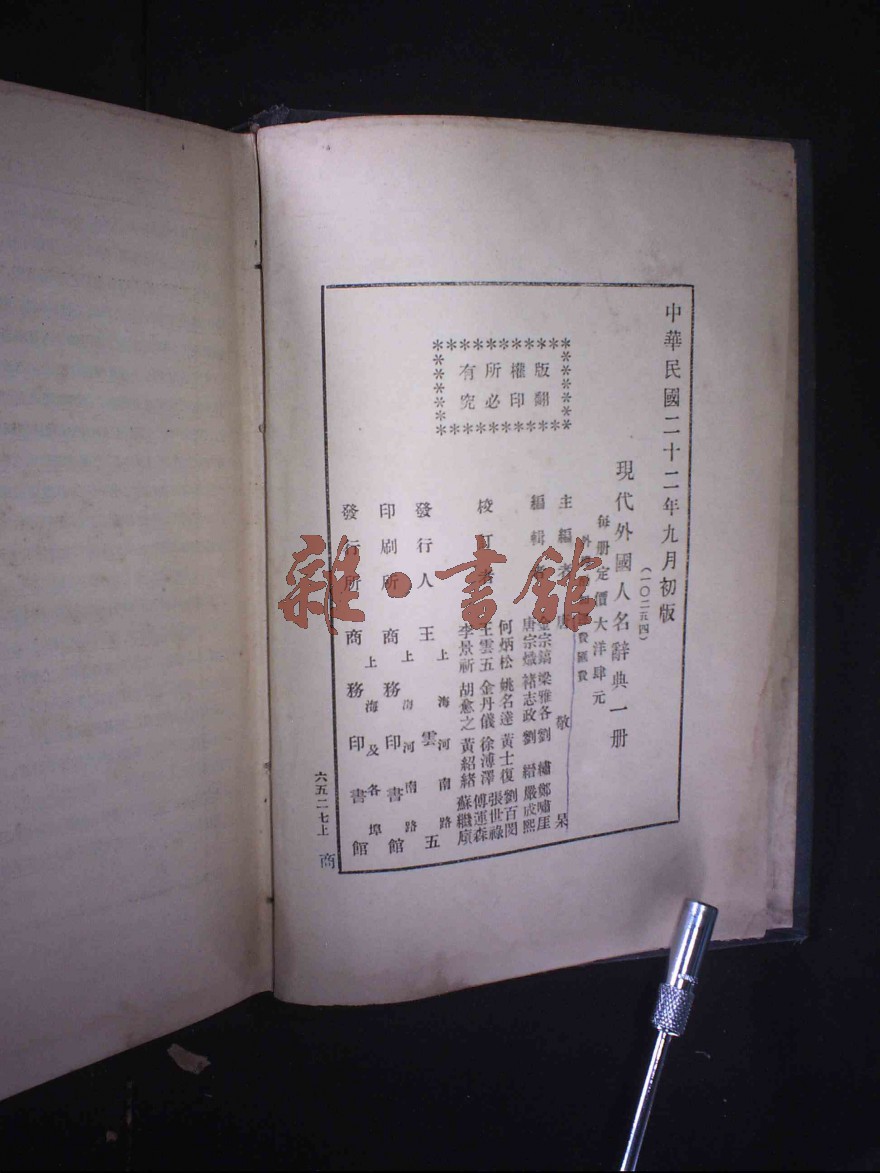 中華民國二十二年九月初版
(一〇二五四)
現代外國人名辭典一册
每册定價大洋肆元
外埠 費匯費
版權所有
翻印必究
主編者 唐敬杲
編輯者
金宗鎬 梁雅各 劉繡 鄭嘯厓
唐宗熾 褚志政 劉縉 嚴成熙
校訂者
何炳松 姚名達 黃士復 劉百閔
王雲五 金丹儀 徐溥澤 張世祿
傅運森
李景新 胡愈之 黃紹緒 蘇繼廎
發行人 王雲五
上海河南路
印刷所 商務印書館
上海河南路
發行所 商務印書館
上海及各埠
六五二七上
商
雜·書館